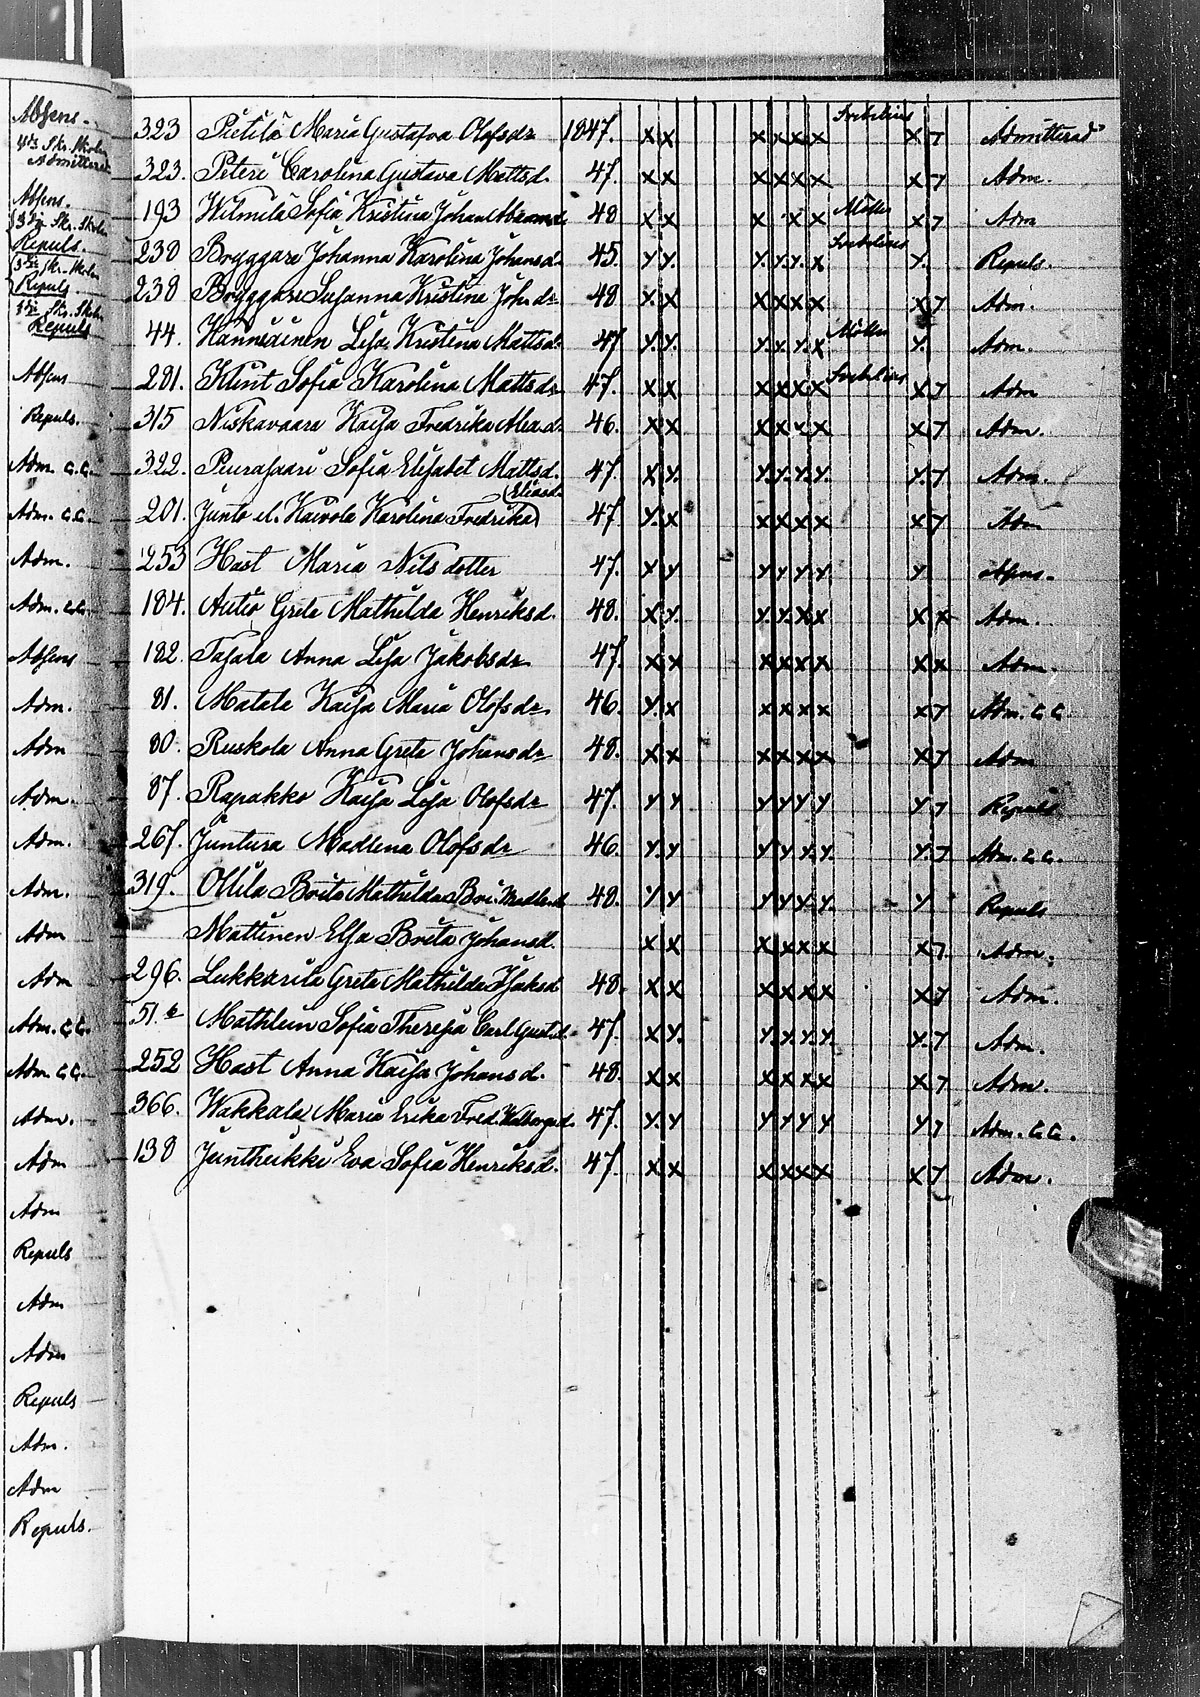 Absens.
4de Skr. Skolan
Admitterad
Absens.
3die Skr. Skolan
Repuls.
3die Skr. Skolan
Repuls
1sta Skr. Skolan
Repuls
Absens
Repuls.
Adm. C.C.
Adm. C.C.
Adm.
Adm. C.C.
Absens
Adm.
Adm
Adm.
Adm.
Adm.
Adm
Adm
Adm. C.C.
Adm. C.C.
Adm.
Adm
Adm
Repuls
Adm
Adm
Repuls
Adm.
Adm
Repuls.
323 Pietilä Maria Gustafva Olofsdr 1847. x x x x x x Forbelius x 7 Admitterad
323. Peteri Carolina Gustava Mattsd. 47. x x x x x x x 7 Adm.
193 Wilmilä Sofia Kristina Johan Abramsd 48 x x x x x x Möller x 7 Adm
238 Brygggare Johanna Karolina Johansd. 45. y y. y. y. y. x Forbelius y. Repuls.
238 Brygggare Susanna Kristina Joh. dr 48 x x x x x x x 7 Adm.
44. Hannuainen Lisa Kristina Mattsd. 47 y. y. y. y. y. x Möller y. Adm.
281. Klint Sofia Karolina Mattsdr 47. x x x x x x Forbelius x 7 Adm
315 Niskavaara Kaisa Fredrika Alexd. 46. x x x x x x x 7 Adm.
322. Peurasaari Sofia Elisabet Mattsd. 47. x y. y. y. y. y. y. 7 Adm.
201. Junto el. Kaivola Karolina Fredrika (Eliasd. 47 y. x x x x x x 7 Adm
253 Hast Maria Nils dotter 47. x y y y y y y Absens.
184. Autio Greta Mathilda Henriksd. 48. x y. y. y. x x x x Adm.
182. Tajala Anna Lisa Jakobsdr 47. x x x x x x x x Adm.
81. Matala Kaisa Maria Olofsdr 46. y. x x x x x x 7 Adm. C.C.
80. Ruskola Anna Greta Johansdr 48. x x x x x x x 7 Adm
87. Rapakko Kaisa Lisa Olofsdr 47. y y y y y y y 7 Repuls
267. Juntura Madlena Olofsdr 46. y. y y y y. y. y. 7 Adm. C.C.
319. Ollila Brita Mathilda Bri. Madlend 48. y y y y y y. y Repuls
Mattinen Elsa Brita Johansd. x x x x x x x 7 Adm.
296. Lukkarila Greta Mathilda Isaksd 48. x x x x x x x 7 Adm.
51. Mathlein Sofia Theresia Carl Gust.d. 47. x y. y. y. y. y. y. 7 Adm.
252 Hast Anna Kaisa Johansd. 48. x x x x x x x 7 Adm.
366. Wakkala Maria Erika Fred. Walborgsd. 47. y. y y y y y y 7 Adm. C.C.
138 Juntheikki Eva Sofia Henriksd. 47. x x x x x x x 7 Adm.